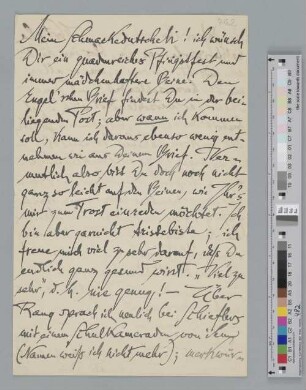 Mein Schmachedutscheli! ich wünsch
Dir ein gnadenreiches Pfingstfest und
immer mädchenhaftere Beine! Den
Engel'schen Brief findest Du in der bei
liegenden Post; aber wann ich kommen
soll, kann ich daraus ebenso wenig ent
nehmen wie aus Deinem Brief. Ver=
mutlich also bist Du doch noch nicht
ganz so leicht auf den Beinen, wie Ihr's
mir zum Trost einreden möchtet. Ich
bin aber garnicht tristebista; ich
freue mich viel zu sehr darauf, daß Du
endlich ganz gesund wirst. „Viel zu
sehr" d. h. nie genug! — Über
Rang sprach ich neulich bei Schieflers
mit einem Schulkameraden von ihm
(Namen weiß ich nicht mehr); merkwür=